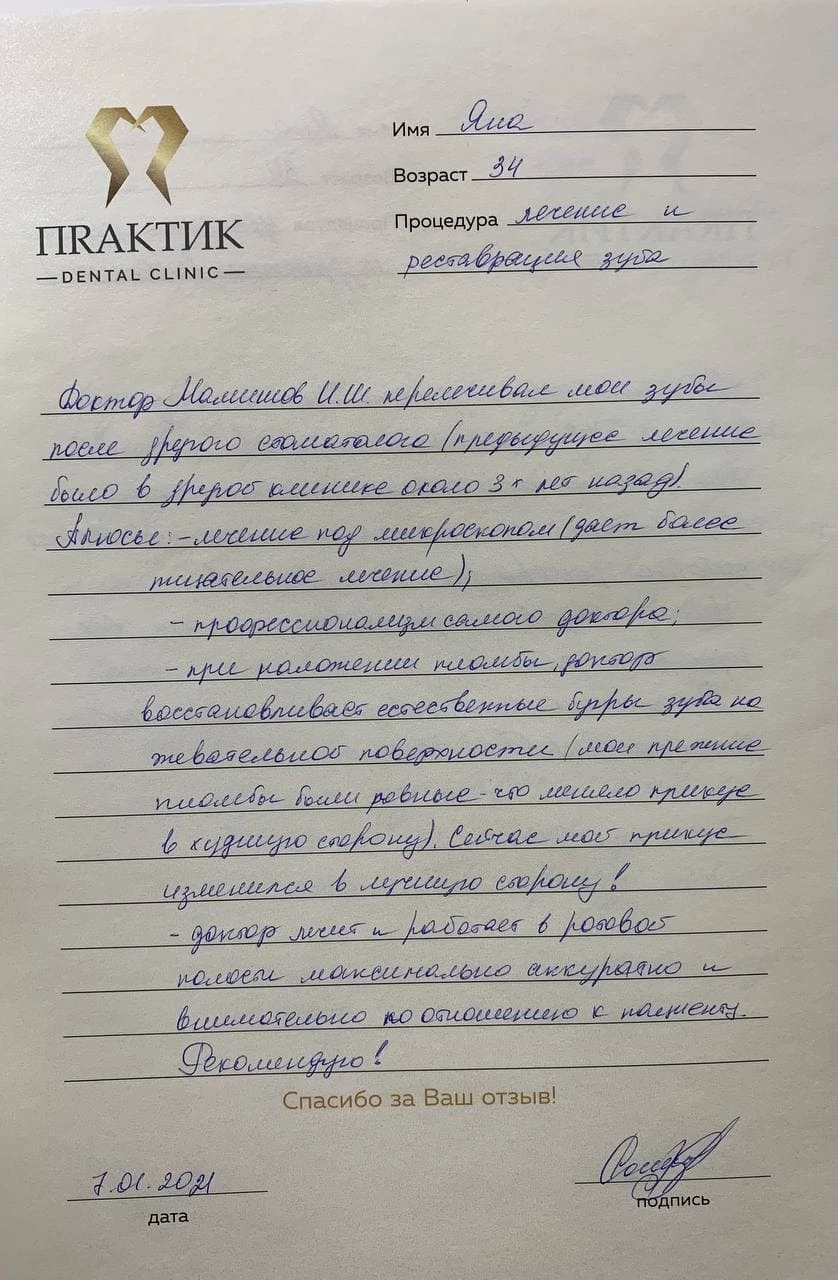 ПRАКТИК
DENTAL CLINIC
Имя Яна
Возраст 34
Процедура лечение и
реставрация зуба
Доктор Малишов И.Ш. перелечивал мои зубы
после другого стоматолога (предыдущее лечение
было в другой клинике около 3х лет назад).
Плюсы: - лечение под микроскопом (дает более
тщательное лечение);
- профессионализм самого доктора;
- при наложении пломбы, доктор
восстанавливает естественные бугры зуба на
жевательной поверхности (мои прежние
пломбы были ровные - что меняло прикус
в худшую сторону). Сейчас мой прикус
изменился в лучшую сторону!
- доктор лечит и работает в ротовой
полости максимально аккуратно и
внимательно по отношению к пациенту.
Рекомендую!
Спасибо за Ваш отзыв!
7.01.2021
дата
подпись